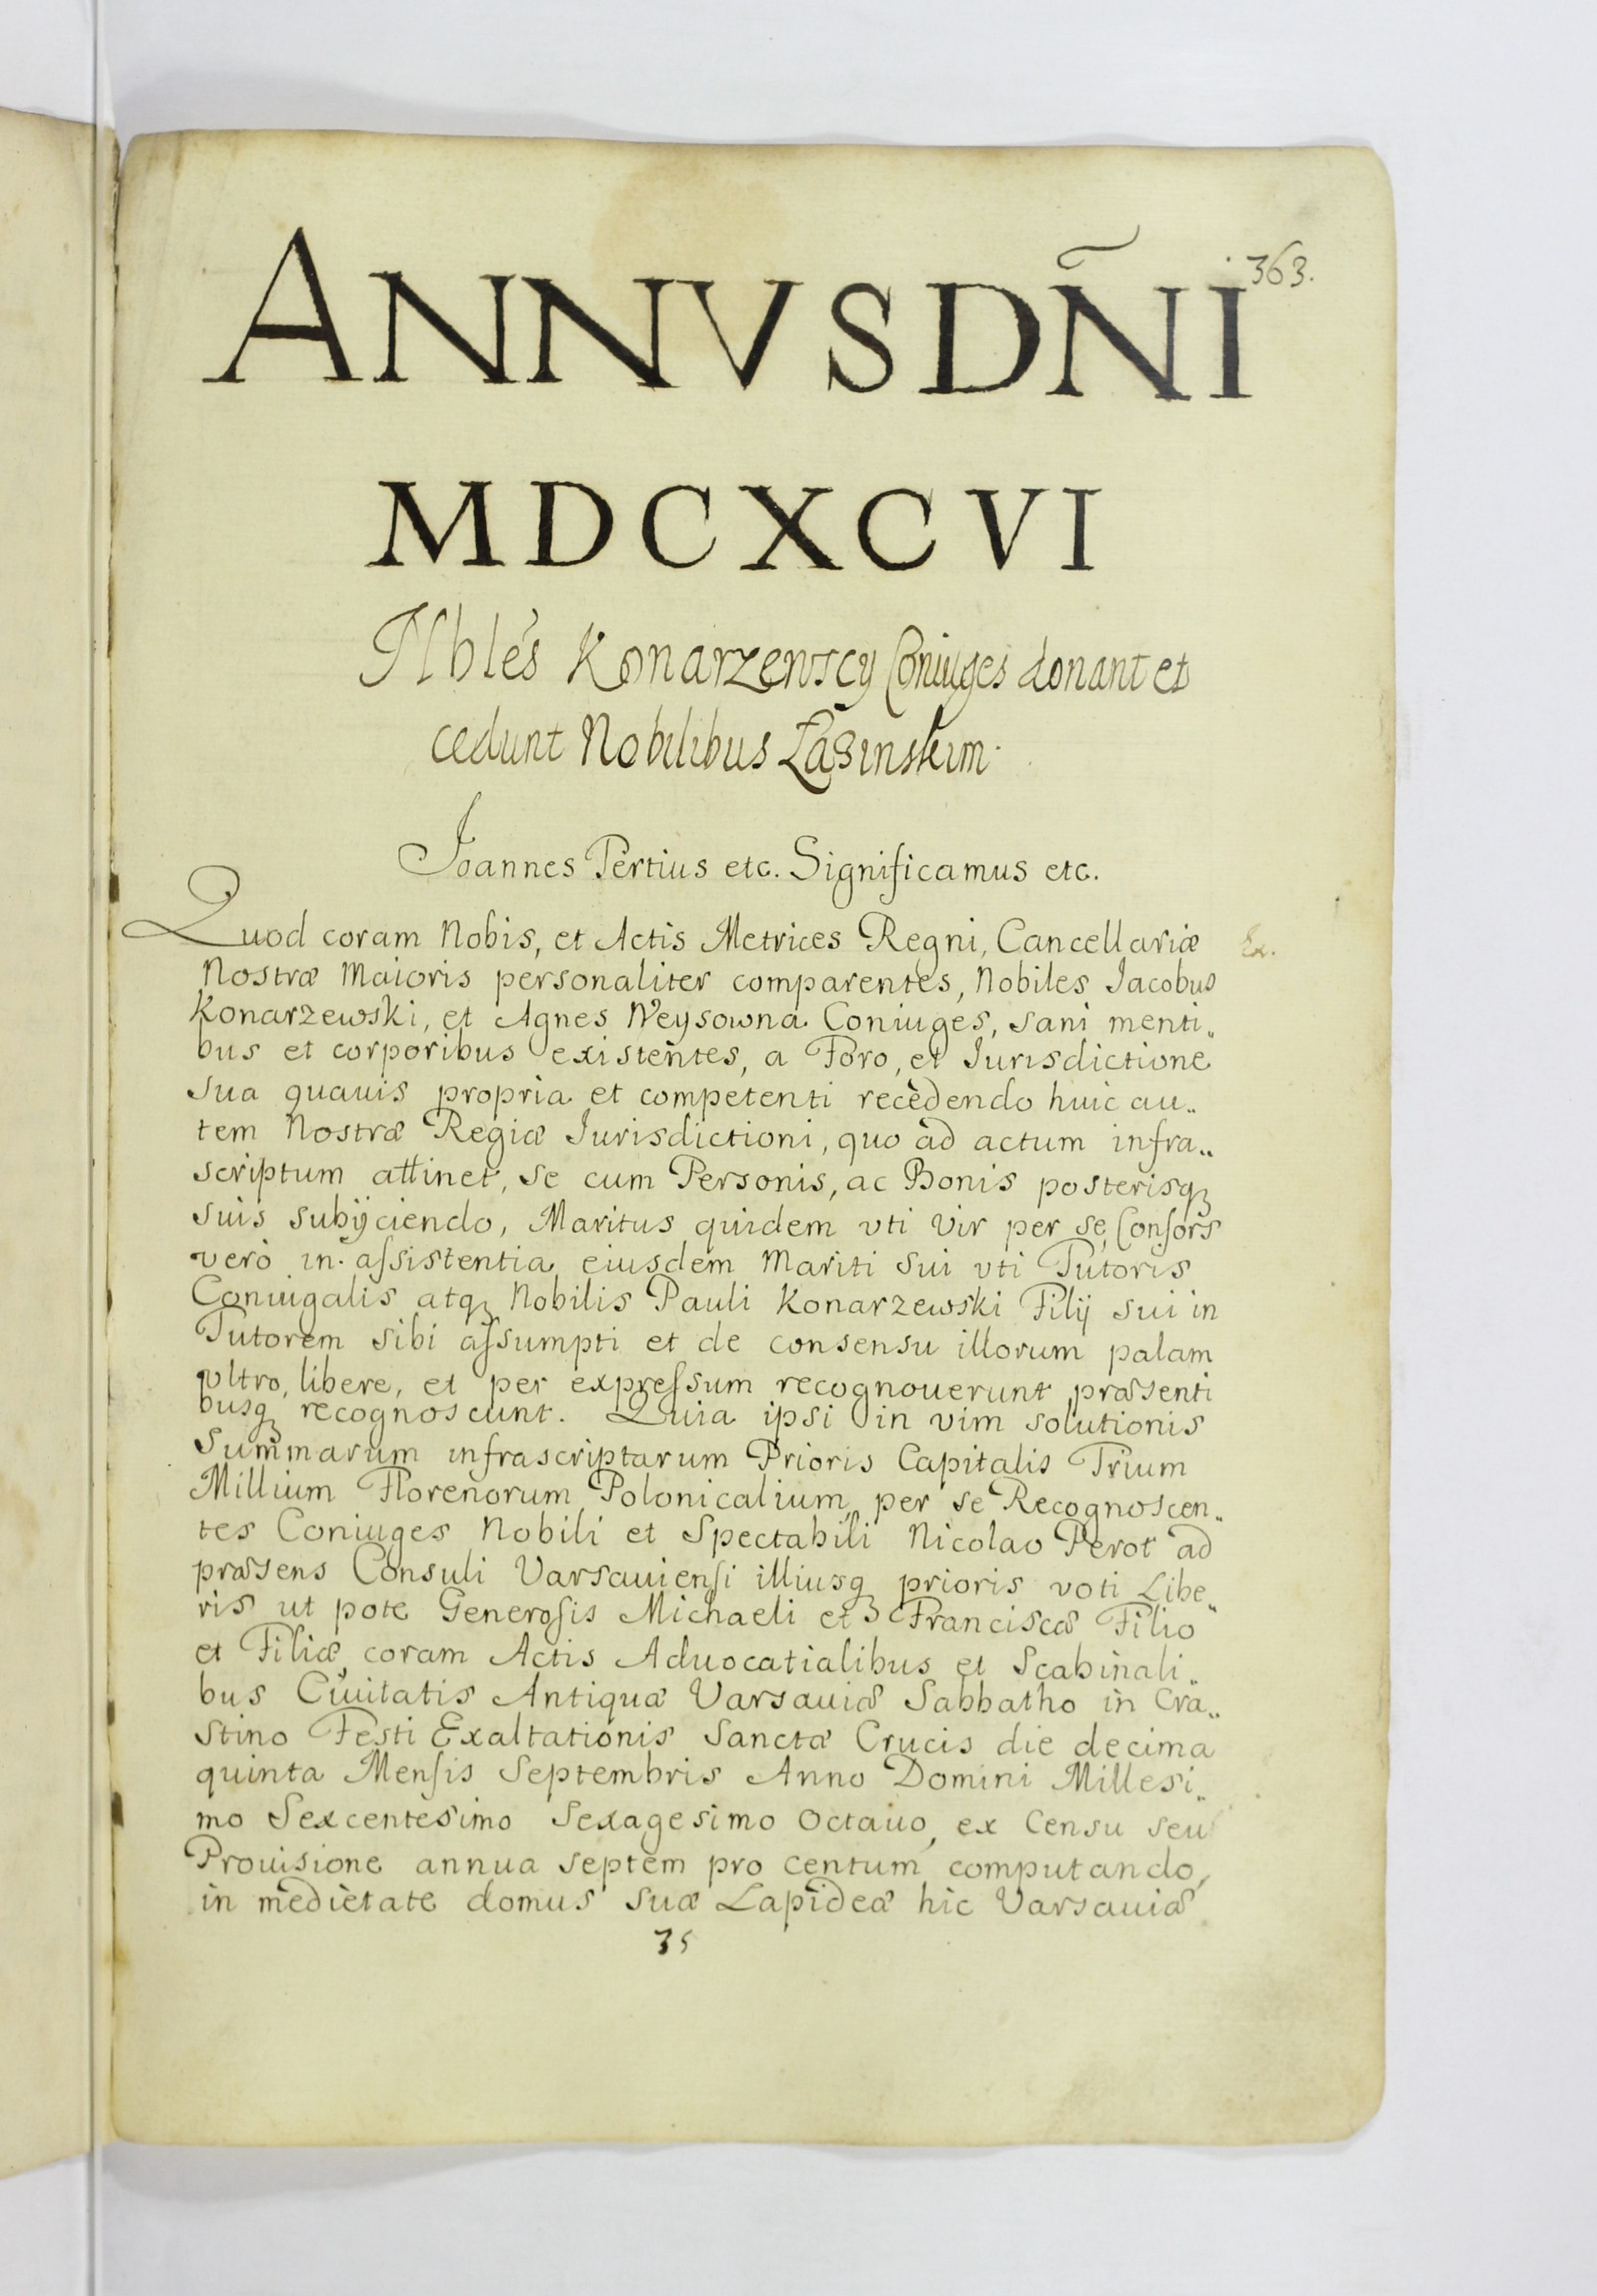 363.
ANNVS DÑI
MDCXCVI
Nblẽs Konarzewscy Coniuges donant et
cedunt Nobilibus Łasinskim.
Joannes Tertius etc. Significamus etc.
Quod coram Nobis, et Actis Metrices Regni, Cancellariæ
Ex.
Nostræ Maioris personaliter comparentes, Nobiles Jacobus
Konarzewski, et Agnes Weysowna Coniuges, sani menti„
bus et corporibus existentes, a Foro, et Jurisdictione
sua quauis propria et competenti recèdendo huic au„
tem Nostræ Regiæ Jurisdictioni, quo ad actum infra„
scriptum attinet, se cum Personis, ac Bonis posterisqꝫ
suis subijciendo, Maritus quidem vti Vir per se, Consors
verò in assistentia eiusdem Mariti sui vti Tutoris
Coniugalis atqꝫ Nobilis Pauli Konarzewski Filij sui in
Tutorem sibi assumpti et de consensu illorum palam
vltro, libere, et per expressum recognouerunt præsenti
busqꝫ recognoscunt. Quia ipsi in vim solutionis
Summarum infrascriptarum Prioris Capitalis Trium
Millium Florenorum Polonicalium, per se Recognoscen„
tes Coniuges Nobili et Spectabili Nicolao Perot ad
præsens Consuli Varsauiensi illiusqꝫ prioris voti Libe„
ris ut pote Generosis Michaeli et Franciscæ Filio
et Filiæ, coram Actis Aduocatialibus et Scabinali„
bus Ciuitatis Antiquæ Varsauiæ Sabbatho in Cra„
stino Festi Exaltationis Sanctæ Crucis die decima
quinta Mensis Septembris Anno Domini Millesi„
mo Sexcentesimo Sexagesimo Octauo, ex Censu seu
Prouisione annua septem pro centum computando,
in medietate domus suæ Lapideæ hic Varsauiæ
35